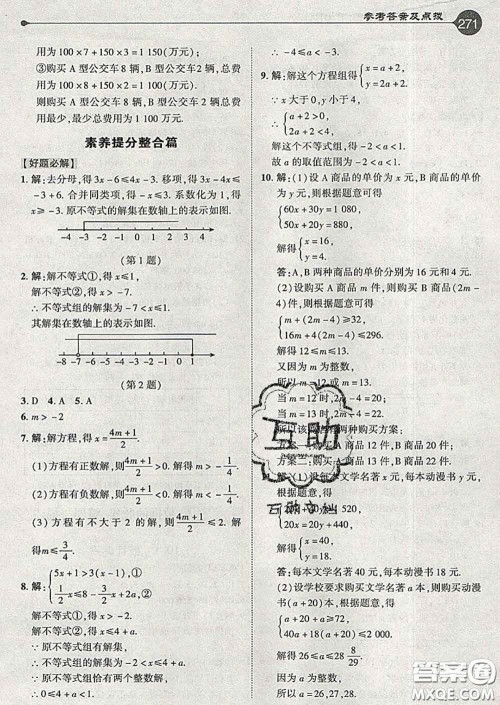 参考答案及点拨
271
用为 100×7+150×3=1 150(万元);
③购买 A 型公交车 8 辆, B 型公交车 2 辆, 总费
用为 100×8+150×2=1 100(万元).
则购买 A 型公交车 8 辆, B 型公交车 2 辆, 总费
用最少, 最少总费用为 1 100 万元.
素养提分整合篇
【好题必解】
1. 解:去分母, 得 3x-6≤4x-3. 移项, 得 3x-4x≤
6-3. 合并同类项, 得 -x≤3. 系数化为 1, 得
x≥-3. 原不等式的解集在数轴上的表示如图.
-4 -3 -2 -1 0 1 2 3 4
(第 1 题)
2. 解:解不等式①, 得 x≤1.
解不等式②, 得 x>-7.
∴不等式组的解集为 -7<x≤1.
其解集在数轴上的表示如图.
-8 -7 -6 -5 -4 -3 -2 -1 0 1
(第 2 题)
3. D 4. A 5. A
6. m>-2
7. 解:解方程, 得 x=(4m+1)/2.
(1)方程有正数解, 则(4m+1)/2>0. 解得 m>-1/4.
(2)方程有负数解, 则(4m+1)/2<0. 解得 m<-1/4.
(3)方程有不大于 2 的解, 则(4m+1)/2≤2. 解
得 m≤3/4.
8. 解:{5x+1>3(x-1), ①
1/2x≤8-3/2x+2a, ②
解不等式①, 得 x>-2.
解不等式②, 得 x≤4+a.
∴原不等式组的解集为 -2<x≤4+a.
∵原不等式组恰有两个整数解,
∴0≤4+a<1.
∴-4≤a<-3.
9. 解:解这个方程组得{x=a+2,
y=a-2.
∵x 大于 0, y 小于 4,
∴{a+2>0,
a-2<4.
解这个不等式组, 得 -2<a<6.
故 a 的取值范围为 -2<a<6.
10. 解:(1)设 A 商品的单价为 x 元, B 商品的单价
为 y 元, 则根据题意可得
{60x+30y=1 080,
50x+20y=880.
解得{x=16,
y=4.
答:A、B 两种商品的单价分别为 16 元和 4 元.
(2)设购买 A 商品 m 件, 则购买 B 商品(2m-
4)件, 根据题意可得
{m+(2m-4)≥32,
16m+4(2m-4)≤296.
解得 12≤m≤13.
又因为 m 为整数,
所以 m=12 或 m=13.
当 m=12 时, 2m-4=20;
当 m=13 时, 2m-4=22.
所以该 两种购买方案:
方案一:购买 A 商品 12 件, B 商品 20 件;
方案二:购买 A 商品 13 件, B 商品 22 件.
解:(1)设每本文学名著 x 元, 每本动漫书
y 元, 根据题意, 得
1 520,
20x=440+20y.
解得{x=40,
y=18.
答:每本文学名著 40 元, 每本动漫书 18 元.
(2)设学校要求购买文学名著 a 本, 则购买动漫
书(a+20)本, 根据题意, 得
{a+(a+20)≥72,
40a+18(a+20)≤2 000.
解得 26≤a≤28 8/29.
因为 a 为整数,
所以 a=26, 27, 28.
互助
互助文档
答案圈
MXQE.COM